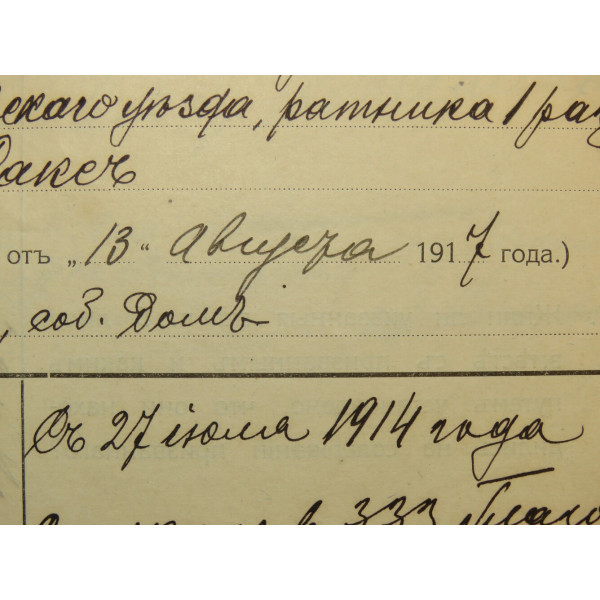 скаго уѣзда, ратника 1 раз
Саксъ
отъ „13“ Августа 1917 года.)
, соб. Домъ
Съ 27 іюля 1914 года
333 Глазо